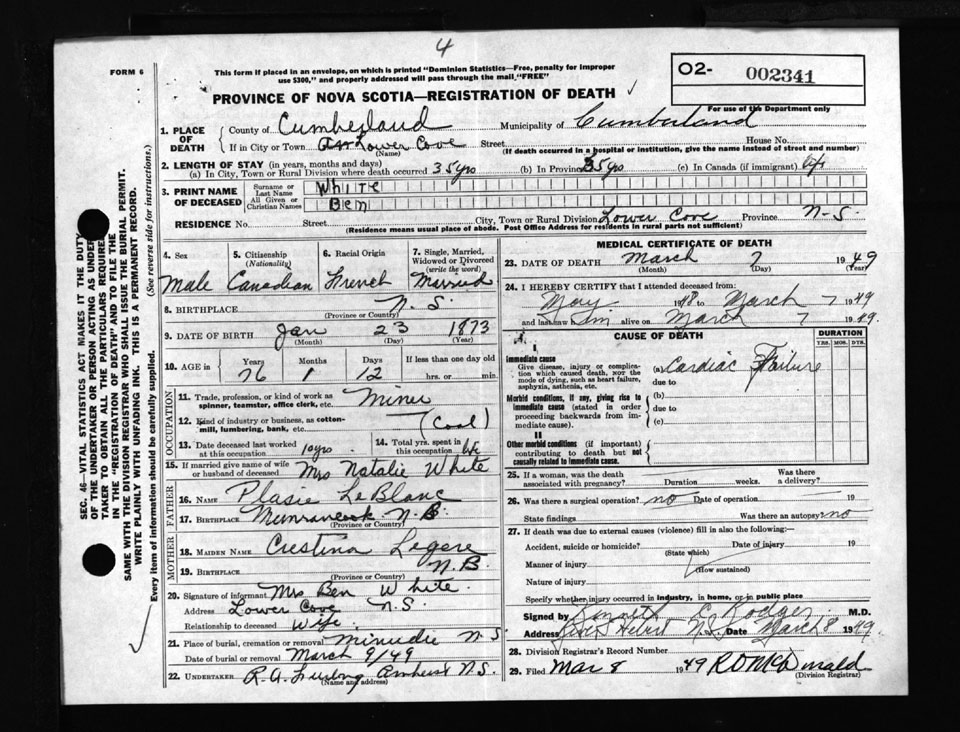 4
FORM 6
This form if placed in an envelope, on which is printed "Dominion Statistics—Free, penalty for improper
use $300," and properly addressed will pass through the mail "FREE"
O2- 002341
For use of the Department only
PROVINCE OF NOVA SCOTIA—REGISTRATION OF DEATH
1. PLACE OF DEATH
County of Cumberland Municipality of Cumberland
If in City or Town Lower Cove Street House No.
(Name) (If death occurred in a hospital or institution, give the name instead of street and number)
2. LENGTH OF STAY (in years, months and days)
(a) In City, Town or Rural Division where death occurred 35 yrs (b) In Province 35 yrs (c) In Canada (if immigrant) life
3. PRINT NAME OF DECEASED
Surname or Last Name White
All Given or Christian Names Ben
RESIDENCE No. Street City, Town or Rural Division Lower Cove Province N-S.
(Residence means usual place of abode. Post Office Address for residents in rural parts not sufficient)
4. Sex
Male
5. Citizenship
(Nationality)
Canadian
6. Racial Origin
French
7. Single, Married, Widowed or Divorced
(write the word)
Married
8. BIRTHPLACE N.S.
(Province or Country)
9. DATE OF BIRTH Jan 23 1873
(Month) (Day) (Year)
10. AGE in
Years Months Days If less than one day old
76 1 12 hrs. or min.
OCCUPATION
11. Trade, profession, or kind of work as
spinner, teamster, office clerk, etc. Miner
12. Kind of industry or business, as cotton-
mill, lumbering, bank, etc. (Coal)
13. Date deceased last worked
at this occupation 10 yrs
14. Total yrs. spent in
this occupation life
15. If married give name of wife
or husband of deceased Mrs Natalie White
FATHER
16. NAME Plasie LeBlanc
17. BIRTHPLACE N.B.
(Province or Country)
MOTHER
18. MAIDEN NAME Crestina Legere
19. BIRTHPLACE N.B.
(Province or Country)
20. Signature of informant Mrs Ben White
Address Lower Cove N.S.
Relationship to deceased Wife
21. Place of burial, cremation or removal Minudie N.S
Date of burial or removal March 9/49
22. UNDERTAKER R.A. Furlong Amherst N.S.
(Name and address)
MEDICAL CERTIFICATE OF DEATH
23. DATE OF DEATH March 7 1949
(Month) (Day) (Year)
24. I HEREBY CERTIFY that I attended deceased from:
May 1948 to March 7 1949
and last saw him alive on March 7 1949.
CAUSE OF DEATH
DURATION
YRS. MOS. DYS.
I
Immediate cause
Give disease, injury or complica-
tion which caused death, not the
mode of dying, such as heart failure,
asphyxia, asthenia, etc.
(a) Cardiac Failure
due to
Morbid conditions, if any, giving rise to
immediate cause (stated in order
proceeding backwards from im-
mediate cause).
(b)
due to
(c)
II
Other morbid conditions (if important)
contributing to death but not
causally related to immediate cause.
25. If a woman, was the death
associated with pregnancy? Duration weeks. Was there a delivery?
26. Was there a surgical operation? no Date of operation 19
State findings Was there an autopsy no
27. If death was due to external causes (violence) fill in also the following:—
Accident, suicide or homicide? Date of injury 19
(State which)
Manner of injury
(How sustained)
Nature of injury
Specify whether injury occurred in industry, in home, or in public place
Signed by Kenneth C Rodger M.D.
Address River Hebert N.S. Date March 8 1949.
28. Division Registrar's Record Number
29. Filed Mar 8 1949 R D McDonald
(Division Registrar)
SEC. 46—VITAL STATISTICS ACT MAKES IT THE DUTY
OF THE UNDERTAKER OR PERSON ACTING AS UNDER-
TAKER TO OBTAIN ALL THE PARTICULARS REQUIRED
IN THE "REGISTRATION OF DEATH" AND TO FILE THE
SAME WITH THE DIVISION REGISTRAR WHO SHALL ISSUE THE BURIAL PERMIT.
WRITE PLAINLY WITH UNFADING INK. THIS IS A PERMANENT RECORD.
Every item of information should be carefully supplied. (See reverse side for instructions.)